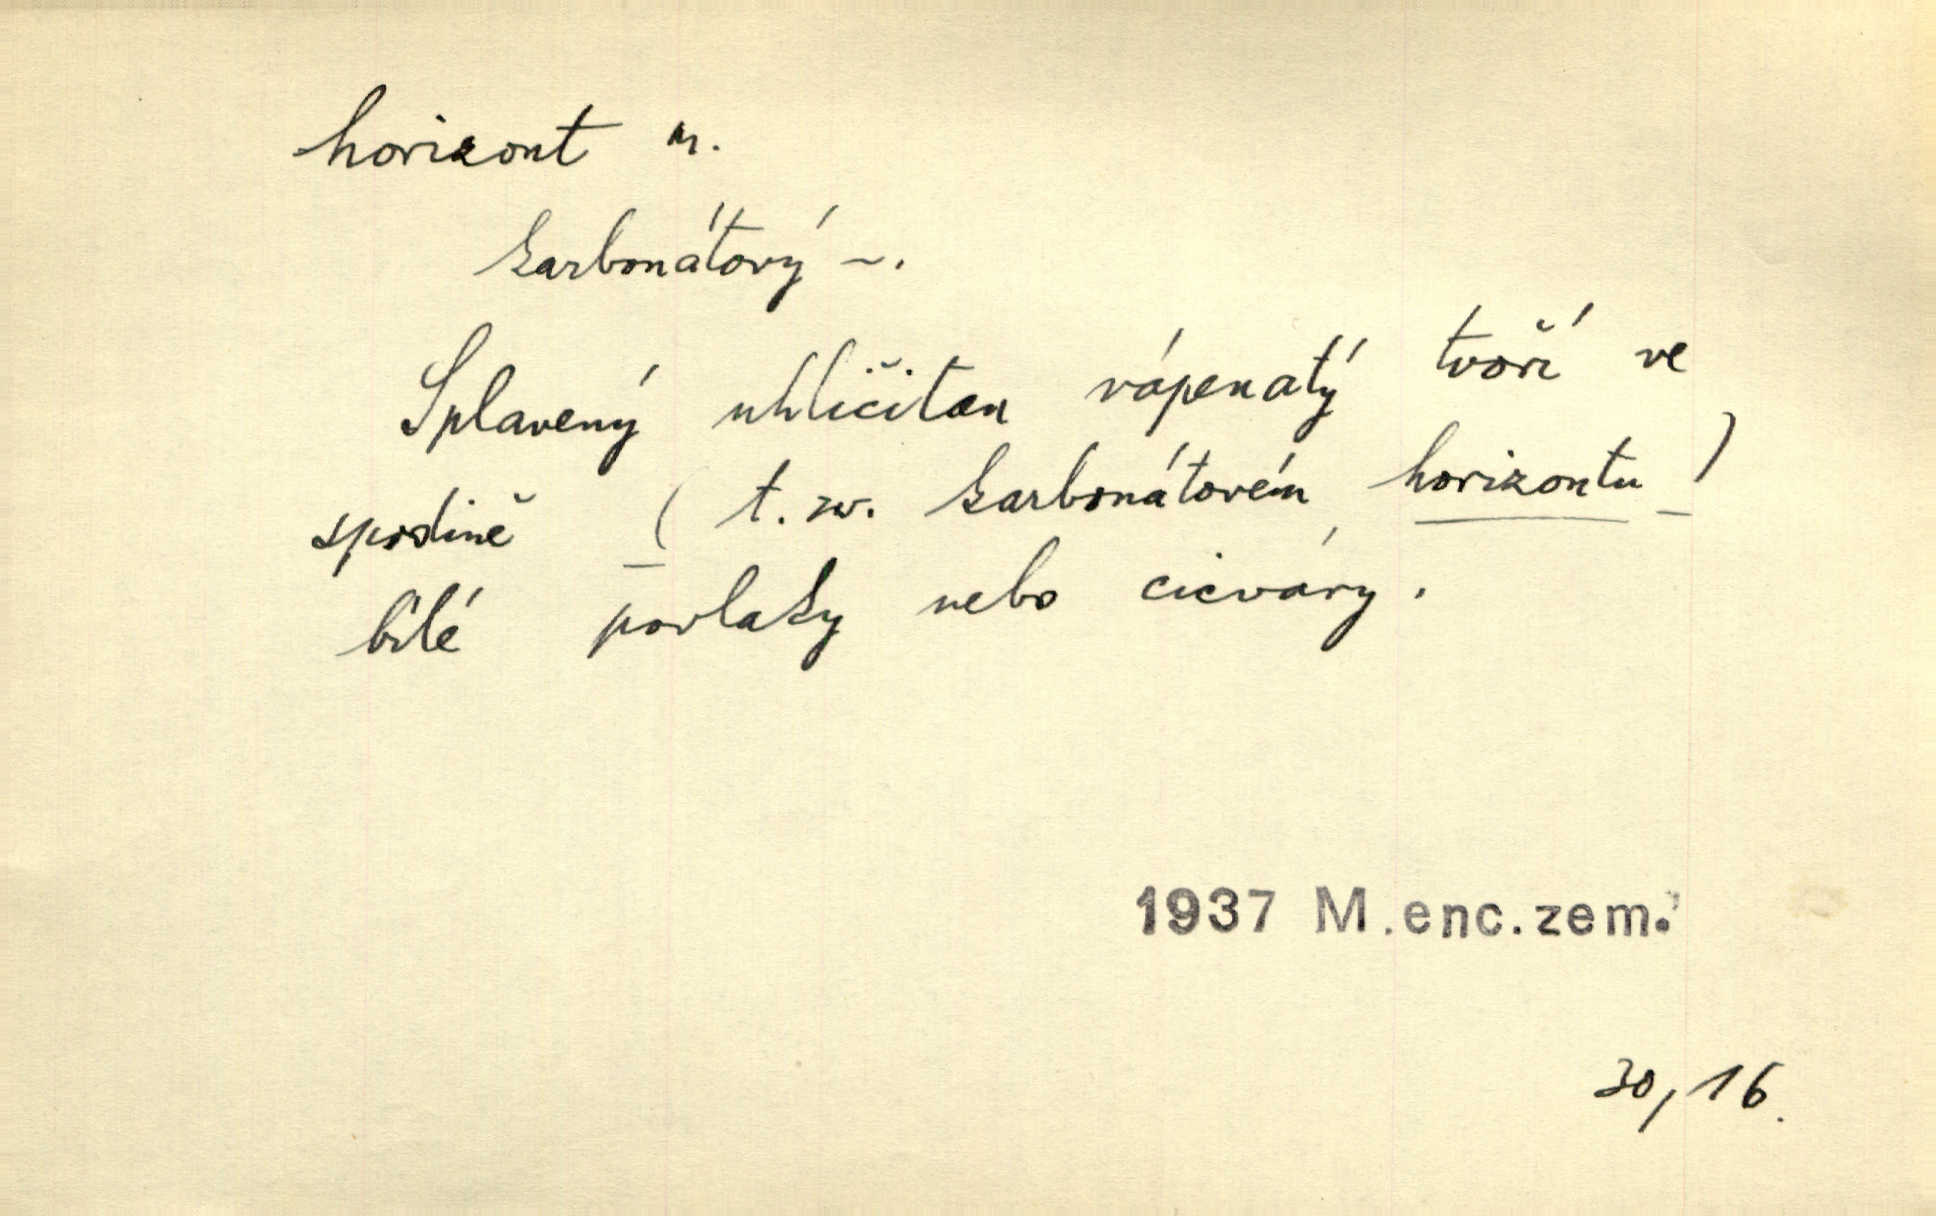 horizont m.
karbonátový ~.
Splavený uhličitan vápenatý tvoří ve
spodině (t. zv. karbonátovém horizontu)
bílé povlaky nebo cicváry.
1937 M.enc.zem.
30, 16.